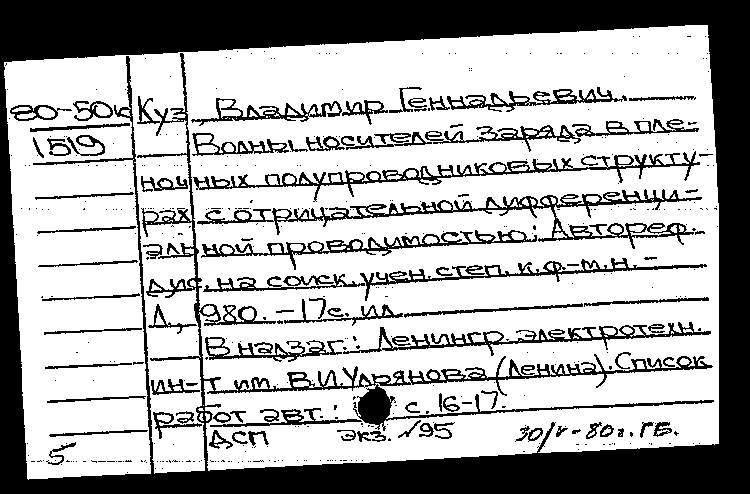 80-50к Куз , Владимир Геннадьевич.
1519 Волны носителей заряда в пле-
ночных полупроводниковых структу-
рах с отрицательной дифференци-
альной проводимостью: Автореф.
дис. на соиск. учен. степ. к.ф-м.н. -
Л., 1980. - 17с., ил.
В надзаг.: Ленингр. электротехн.
ин-т им. В.И.Ульянова (Ленина). Список
работ авт.: с. 16-17.
ДСП экз. №95 30/V-80г. ГБ.
5